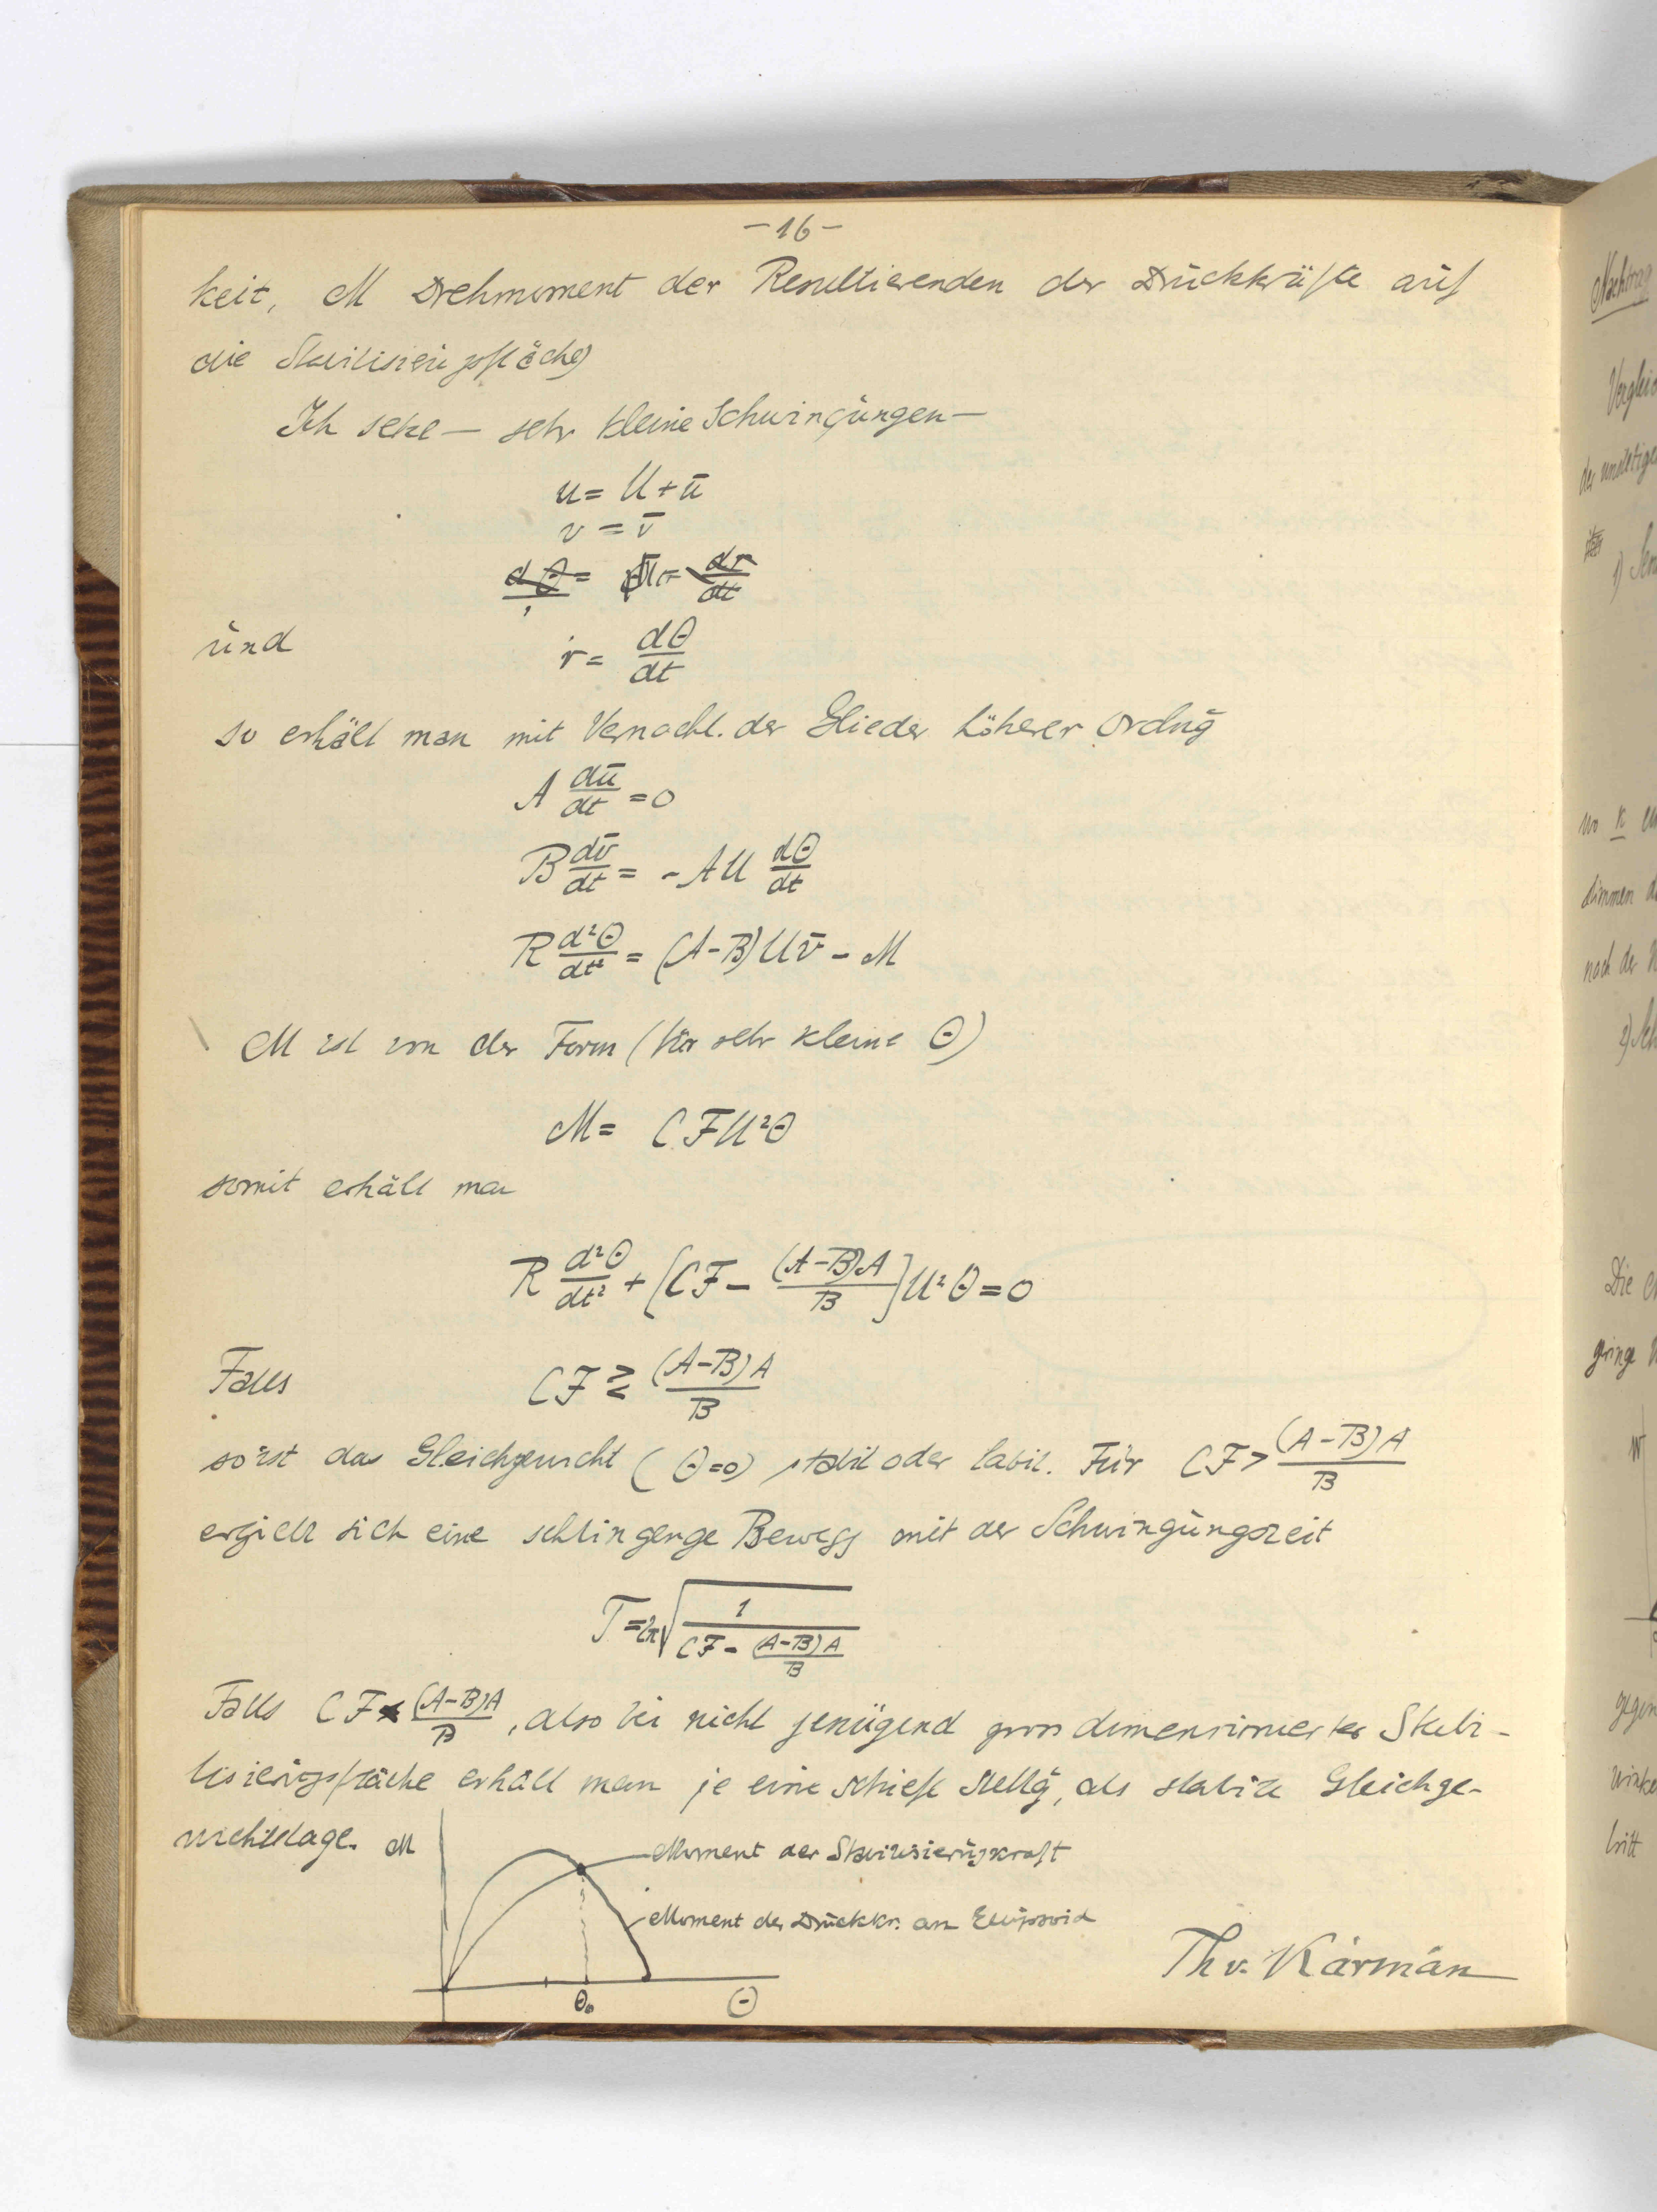 -16-
keit, M Drehmoment der Resultierenden der Druckkräfte auf
die Stabilisierungsfläche)
Ich setze — sehr kleine Schwingungen —
u = U + ū
v = v̄
und r = dθ/dt
so erhält man mit Vernachl. der Glieder höherer Ordng
A dū/dt = 0
B dv̄/dt = - A U dθ/dt
R d²θ/dt² = (A-B) U v̄ - M
M ist von der Form (für sehr kleine θ)
M = C F U² θ
somit erhält man
R d²θ/dt² + [CF - (A-B)A/B] U² θ = 0
Falls CF ≷ (A-B)A/B
so ist das Gleichgewicht (θ=0) stabil oder labil. Für CF > (A-B)A/B
ergiebt sich eine Bewegg mit der Schwingungszeit
T = 2π √(1/(CF - (A-B)A/B))
Falls CF < (A-B)A/B, also bei nicht genügend gross dimensionierter Stabi-
lisierungsfläche erhält man je eine schiefe Stellg, als stabile Gleichge-
wichtslage. M
Moment der Stabilisierungskraft
Moment der Druckkr. am Ellipsoid
Th v. Kármán
θ₀ θ
Nachtrag